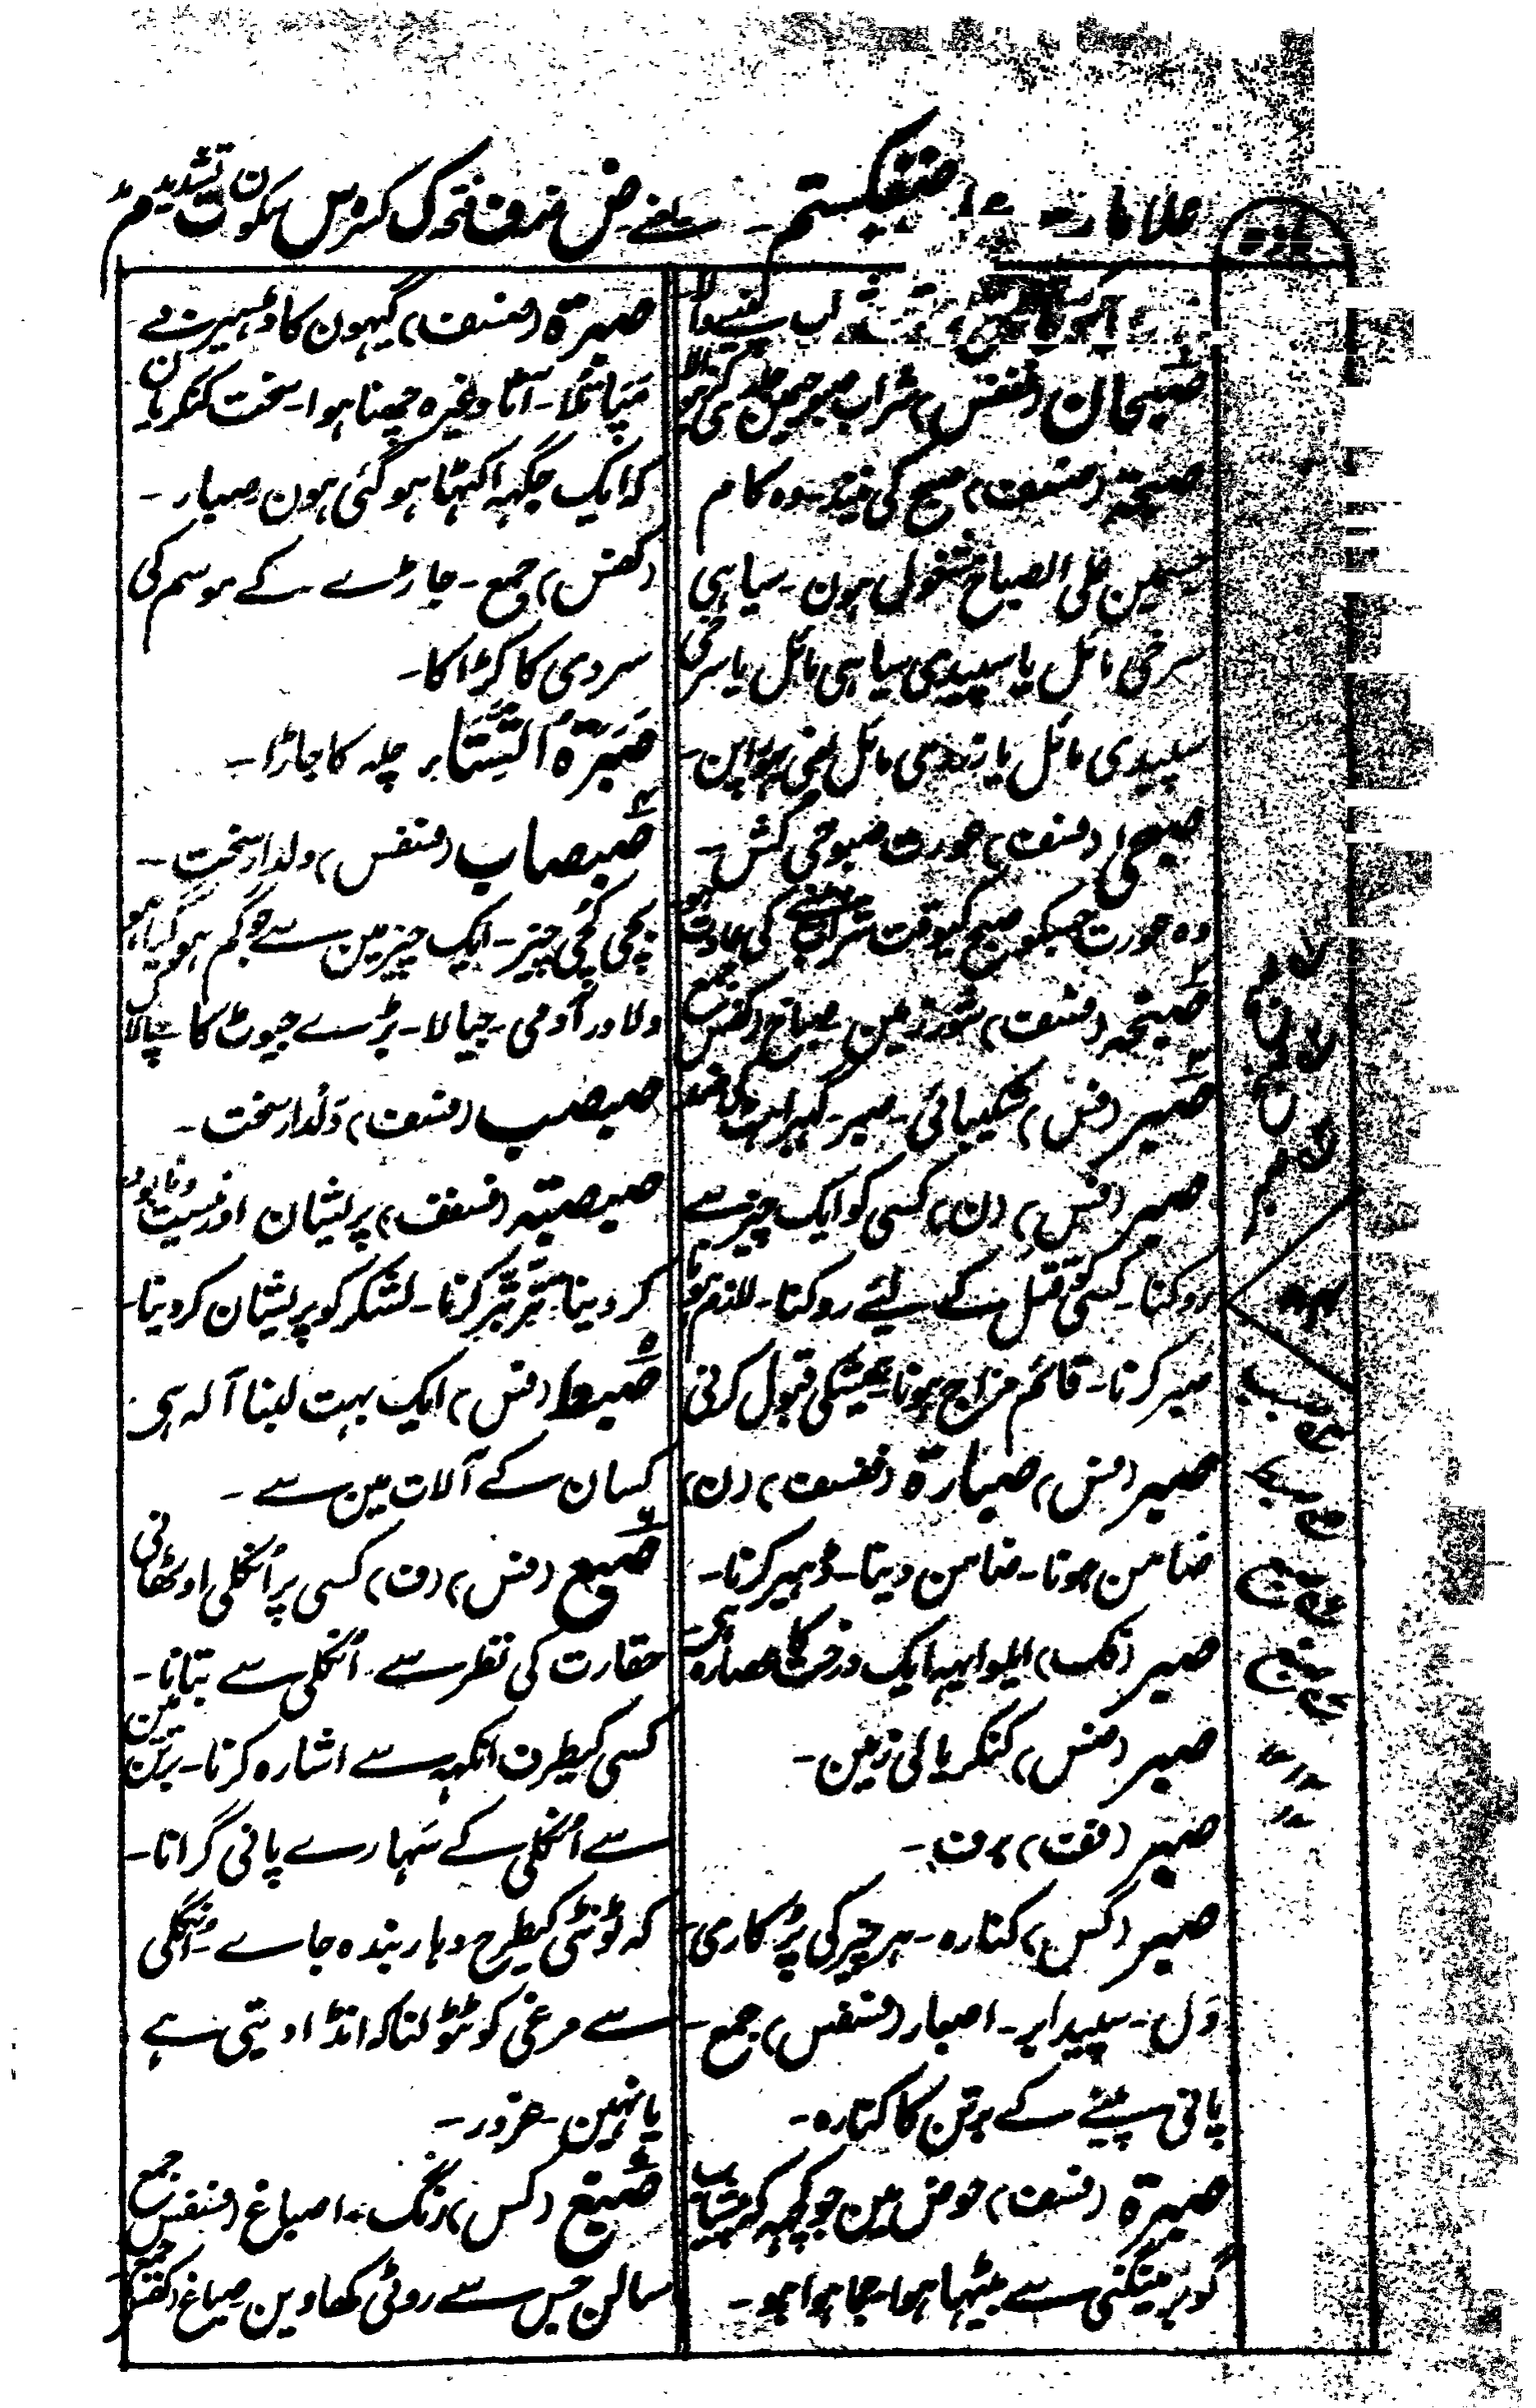 علامات ضفکستم۔ یعنے ض ضمہ ف فتحہ ک کسرہ س سکون ت تشدید م مد
مادہ
صبحان (فنفس) شراب صبوحی
صبحۃ (ضسف) صبح کی نیند۔ وہ کام
جسمین علی الصباح مشغول ہون۔ سیاہی
سرخی مائل یا سپیدی سیاہی مائل یا سرخی
سپیدی مائل یا زردی مائل
صبحیٰ (فسف) عورت صبوحی کش۔
وہ عورت جسکو صبح کیوقت شراب پینے کی عادت ہو
صبخہ (فسف) شور زمین۔ صباخ (کفس) جمع
صبر (فس) شکیبائی۔ صبر۔ گہبراہٹ کی ضد
صبر (فس) (ن) کسی کو ایک چیز سے
روکنا۔ کسی کو قتل کے لئے روکنا۔ لازم ہونا
صبر کرنا۔ قائم مزاج ہونا۔ ہمیشگی قبول کرنی
صبر (فس) صبارۃ (ففسف) (ن)
ضامن ہونا۔ ضامن دینا۔ ڈہیر کرنا۔
صبر (فک) ایلوا یہہ ایک درخت کا عصارہ ہی۔
صبر (ضس) کنکریالی زمین۔
صبر (فف) برف۔
صبر (کس) کنارہ۔ ہر چیز کی پڑکاری۔
دَل۔ سپید ابر۔ اصبار (فسفس) جمع۔
پانی پینے کے برتن کا کنارہ۔
صبرۃ (فسف) حوض مین جو کچہہ کہ پیشاب
گوبر مینگنی سے بیٹہا ہوا۔ جما ہوا ہو۔
صبرۃ (ضسف) گیہون کا ڈہیر بے
نپا تُلا۔ آٹا وغیرہ چھنا ہوا۔ سخت کنکریان
کہ ایک جگہہ اکہٹا ہو گئی ہون صبار۔
(کفس) جمع۔ جاڑے کے موسم کی
سردی کا کڑاکا۔
صَبَرَّۃُ الشِّتَاء چلہ کا جاڑا۔
صبصاب (فسفس) دلدار سخت۔
بچی کُچی چیز۔ ایک چیز مین سے جو گم ہو گیا ہو
دلاور آدمی۔ جیالا۔ بڑے جیوٹ کا
صبصب (فسف) دَلدار سخت۔
صبصبۃ (فسفف) پریشان اور نیست و نابود
کر دینا۔ تتر بتر کرنا۔ لشکر کو پریشان کر دینا۔
صبط (فس) ایک بہت لبنا آلہ ہی
کسان کے آلات مین سے۔
صبع (فس) (ف) کسی پر اُنگلی اوٹھانی
حقارت کی نظر سے۔ اُنگلی سے بتانا۔
کسی کیطرف انگہہ سے اشارہ کرنا۔ برتن مین
سے اُنگلی کے سَہارے پانی گرانا۔
کہ ٹونٹی کیطرح دہار بندہ جاے۔ اُنگلی
سے مرغی کو ٹٹولنا کہ انڈا دیتی ہے
یا نہین۔ غرور۔
صبغ (کس) رنگ۔ اصباغ (فسفس) جمع
سالن جس سے روٹی کھاوین صباغ